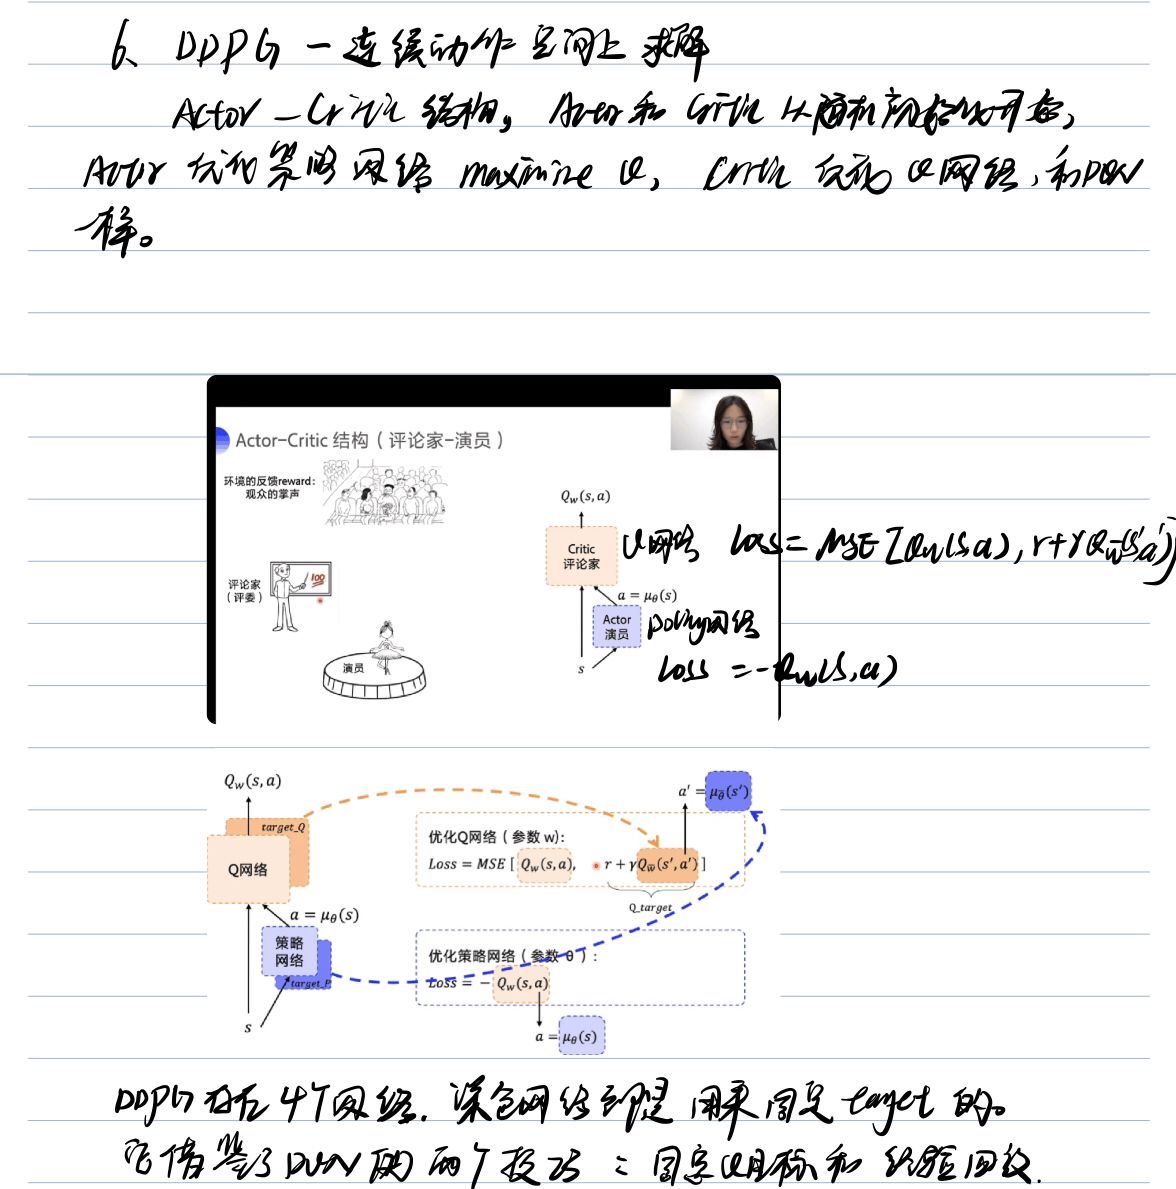 6、DDPG — 连续动作空间上求解
Actor — Critic 结构，Actor 和 Critic 从随机初始化开始，
Actor 优化策略网络 maximize Q，Critic 优化 Q网络，和DQN
一样。
Actor-Critic 结构（评论家-演员）
环境的反馈reward：
观众的掌声
100
评论家
（评委）
演员
Q_w(s,a)
Critic
评论家
Q网络 Loss = MSE[Q_w(s,a), r+γQ_w̄(s',a')]
a = μ_θ(s)
Actor
演员
policy网络
s
Loss = -Q_w(s,a)
Q_w(s,a)
target_Q
Q网络
a = μ_θ(s)
策略
网络
target_P
s
a' = μ_θ̄(s')
优化Q网络（参数 w)：
Loss = MSE [ Q_w(s,a), r + γQ_w̄(s',a') ]
Q_target
优化策略网络（参数 θ ）：
Loss = − Q_w(s,a)
a = μ_θ(s)
DDPG 存在 4个网络. 深色网络都是 用来固定 target 的。
它借鉴了DQN 的 两个技巧：固定Q目标和 经验回放.